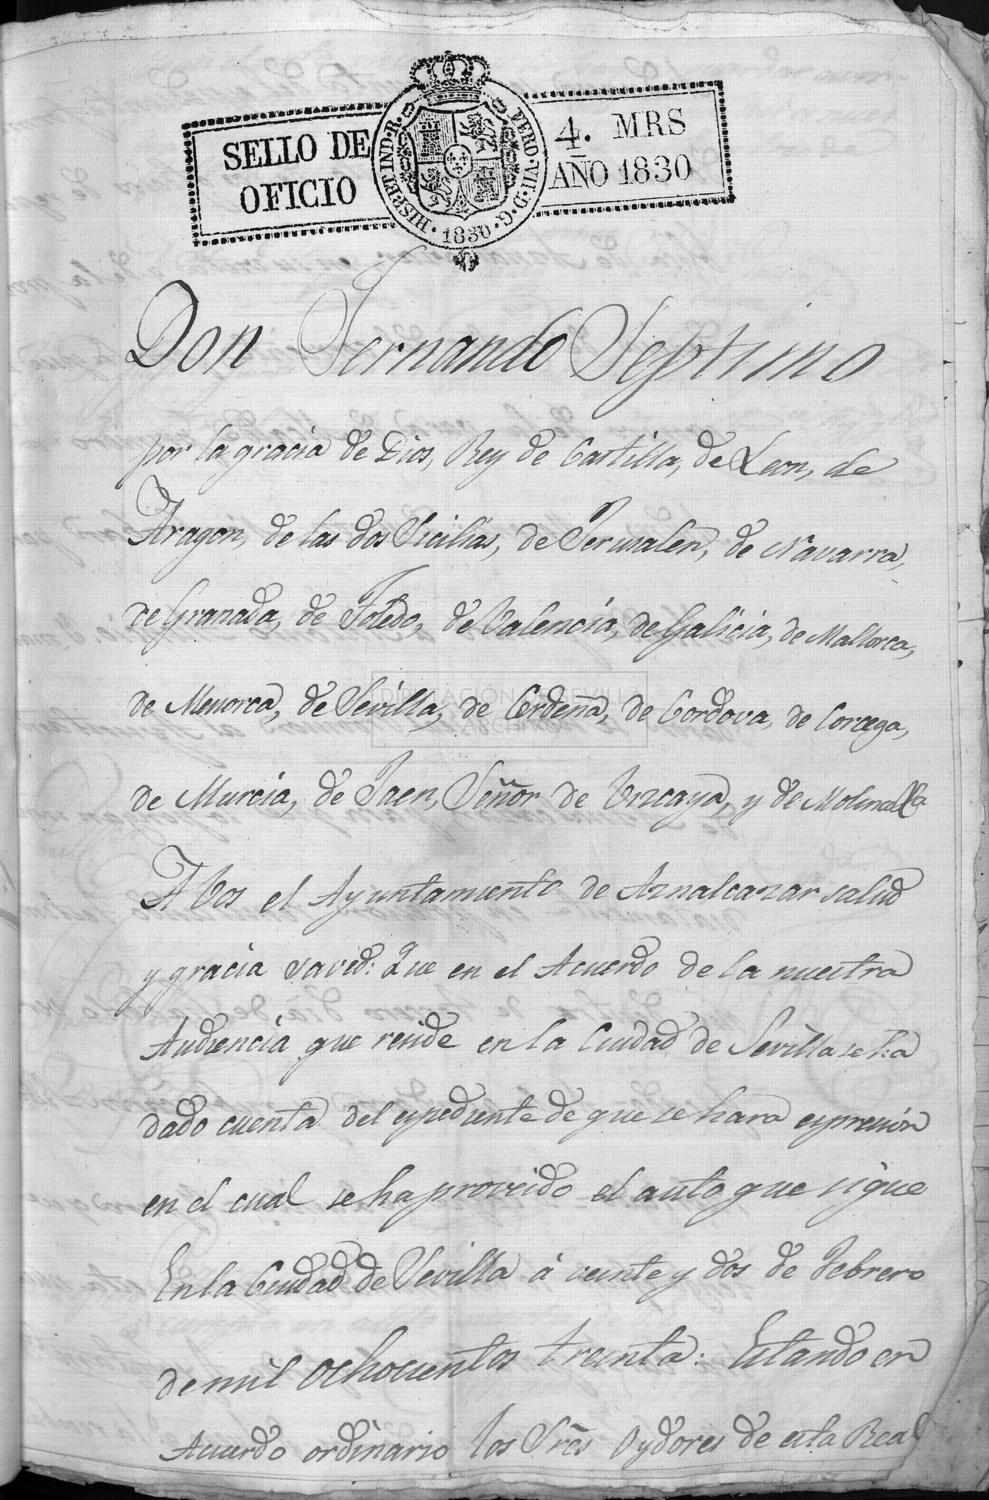 SELLO DE
OFICIO
HISP. ET IND. R. FERD. VII. D. G. 1830
4. MRS
AÑO 1830
Don Fernando Septimo
por la gracia de Dios, Rey de Castilla, de Leon, de
Aragon, de las dos Sicilias, de Jerusalen, de Navarra,
de Granada, de Toledo, de Valencia, de Galicia, de Mallorca,
de Menorca, de Sevilla, de Cerdeña, de Cordova, de Corcega,
de Murcia, de Jaen, Señor de Vizcaya, y de Molina &a
A Vos el Ayuntamiento de Aznalcazar salud
y gracia saved: Que en el Acuerdo de la nuestra
Audiencia que reside en la Ciudad de Sevilla se ha
dado cuenta del espediente de que se hara espresión
en el cual se ha proveido el auto que sigue
En la Ciudad de Sevilla á veinte y dos de Febrero
de mil ochocientos treinta: Estando en
Acuerdo ordinario los Sres Oydores de esta Real